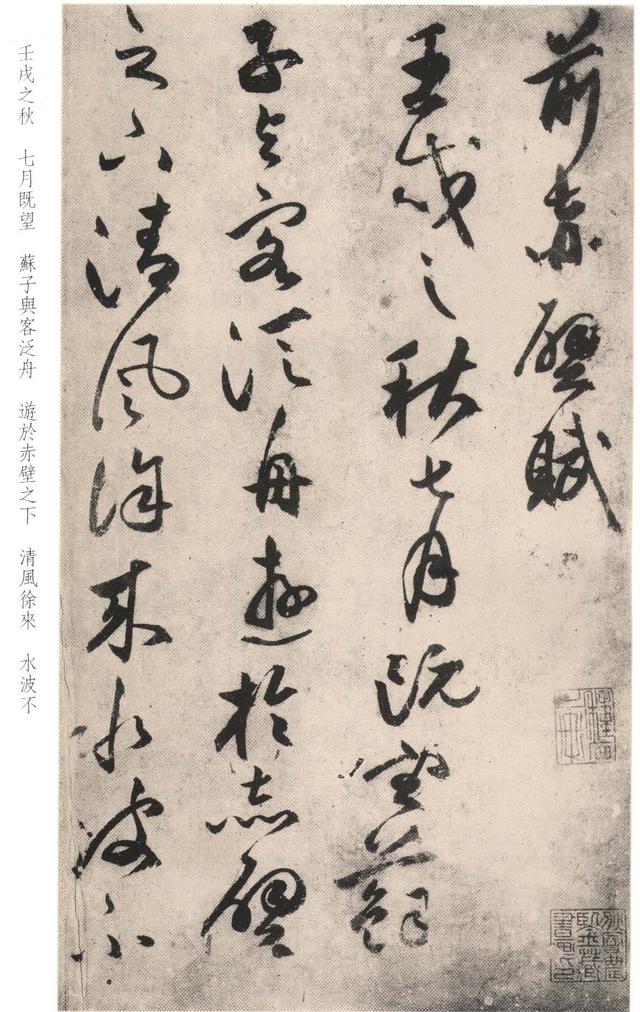 前赤壁賦
壬戌之秋七月既望蘇
子與客泛舟遊於赤壁
之下清風徐來水波不
壬戌之秋　七月既望　蘇子與客泛舟　遊於赤壁之下　清風徐來　水波不